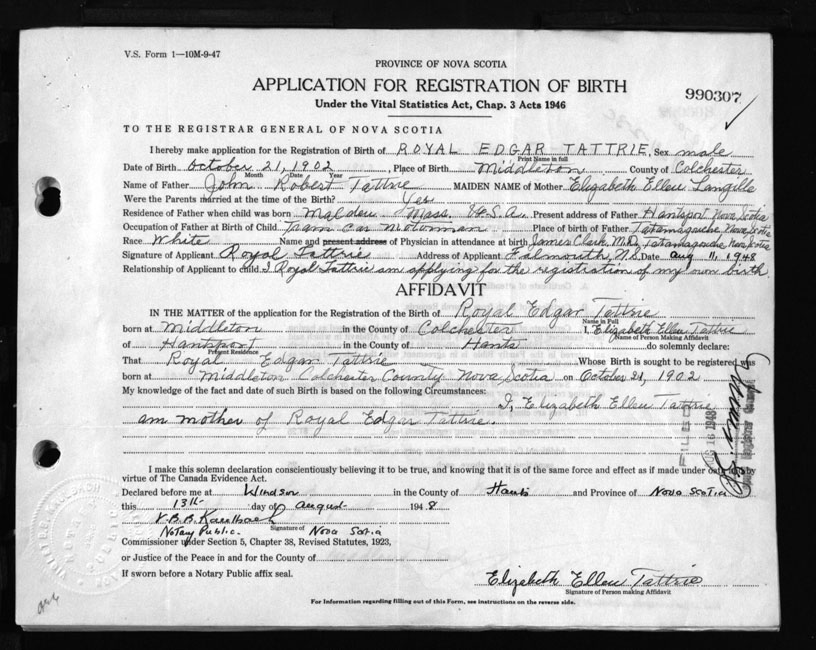 V.S. Form 1—10M-9-47
PROVINCE OF NOVA SCOTIA
APPLICATION FOR REGISTRATION OF BIRTH
990307
Under the Vital Statistics Act, Chap. 3 Acts 1946
TO THE REGISTRAR GENERAL OF NOVA SCOTIA
I hereby make application for the Registration of Birth of ROYAL EDGAR TATTRIE, Sex male
Print Name in full
Date of Birth October 21, 1902, Place of Birth Middleton County of Colchester
Month Date Year
Name of Father John Robert Tattrie MAIDEN NAME of Mother Elizabeth Ellen Langille
Were the Parents married at the time of the Birth? Yes
Residence of Father when child was born Malden Mass. U.S.A. Present address of Father Hantsport Nova Scotia
Occupation of Father at Birth of Child Tram Car Motorman Place of birth of Father Tatamagouche Nova Scotia
Race White Name and present address of Physician in attendance at birth James Clark, M.D. Tatamagouche Nova Scotia
Signature of Applicant Royal Tattrie Address of Applicant Falmouth, N.S. Date Aug 11, 1948
Relationship of Applicant to child I Royal Tattrie am applying for the registration of my own birth
AFFIDAVIT
IN THE MATTER of the application for the Registration of the Birth of Royal Edgar Tattrie
Name in Full
born at Middleton in the County of Colchester I, Elizabeth Ellen Tattrie
Name of Person Making Affidavit
of Hantsport in the County of Hants do solemnly declare:
Present Residence
That Royal Edgar Tattrie Whose Birth is sought to be registered was
born at Middleton Colchester County Nova Scotia on October 21, 1902
My knowledge of the fact and date of such Birth is based on the following Circumstances:
I, Elizabeth Ellen Tattrie
am mother of Royal Edgar Tattrie.
FILED
AUG 16 1948
I make this solemn declaration conscientiously believing it to be true, and knowing that it is of the same force and effect as if made under oath by
virtue of The Canada Evidence Act.
Declared before me at Windsor in the County of Hants and Province of Nova Scotia
this 13th day of August 1948
Notary Public. Signature of Nova Scotia
Commissioner under Section 5, Chapter 38, Revised Statutes, 1923,
or Justice of the Peace in and for the County of
If sworn before a Notary Public affix seal.
Elizabeth Ellen Tattrie
Signature of Person making Affidavit
For Information regarding filling out of this Form, see instructions on the reverse side.